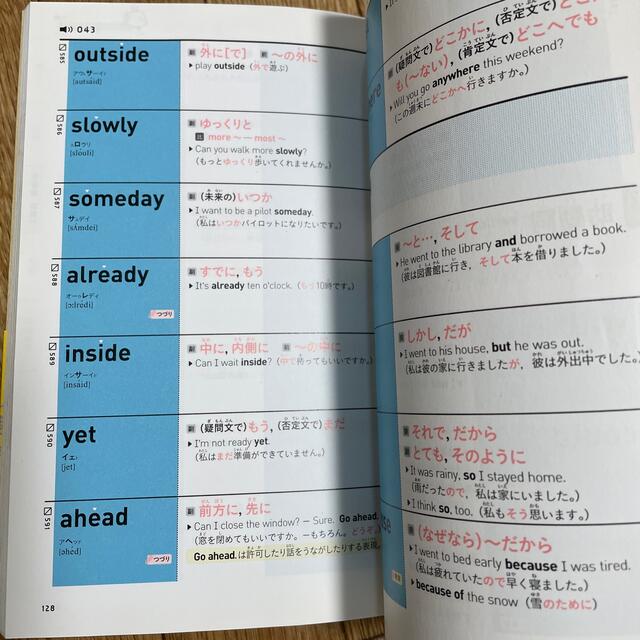 043
585
outside
アウトサーイド
[autsáid]
副 外に[で] 前 〜の外に
▶play outside (外で遊ぶ)
586
slowly
スロウリ
[slóuli]
副 ゆっくりと
比 more 〜 — most 〜
▶Can you walk more slowly?
(もっとゆっくり歩いてくれませんか。)
587
someday
サムデイ
[sʌ́mdei]
副 (未来の)いつか
▶I want to be a pilot someday.
(私はいつかパイロットになりたいです。)
588
already
オールレディ
[ɔːlrédi]
つづり
副 すでに, もう
▶It's already ten o'clock. (もう10時です。)
589
inside
インサーイド
[insáid]
副 中に, 内側に 前 〜の中に
▶Can I wait inside? (中で待ってもいいですか。)
590
yet
イェト
[jet]
副 (疑問文で)もう, (否定文で)まだ
▶I'm not ready yet.
(私はまだ準備ができていません。)
591
ahead
アヘッド
[əhéd]
つづり
副 前方に, 先に
▶Can I close the window? — Sure. Go ahead.
(窓を閉めてもいいですか。—もちろん。どうぞ
Go ahead.は許可したり話をうながしたりする表現。
128
(疑問文で)どこかに, (否定文で)どこ
も(〜ない), (肯定文で)どこへでも
▶Will you go anywhere this weekend?
(この週末にどこかへ行きますか。)
接 〜と…, そして
▶He went to the library and borrowed a book.
(彼は図書館に行き, そして本を借りました。)
接 しかし, だが
▶I went to his house, but he was out.
(私は彼の家に行きましたが, 彼は外出中でした。)
接 それで, だから
副 とても, そのように
▶It was rainy, so I stayed home.
(雨だったので, 私は家にいました。)
▶I think so, too. (私もそう思います。)
接 (なぜなら)〜だから
▶I went to bed early because I was tired.
(私は疲れていたので早く寝ました。)
▶because of the snow (雪のために)